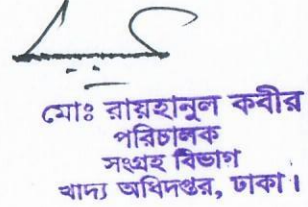 মোঃ রায়হানুল কবীর
পরিচালক
সংগ্রহ বিভাগ
খাদ্য অধিদপ্তর, ঢাকা।